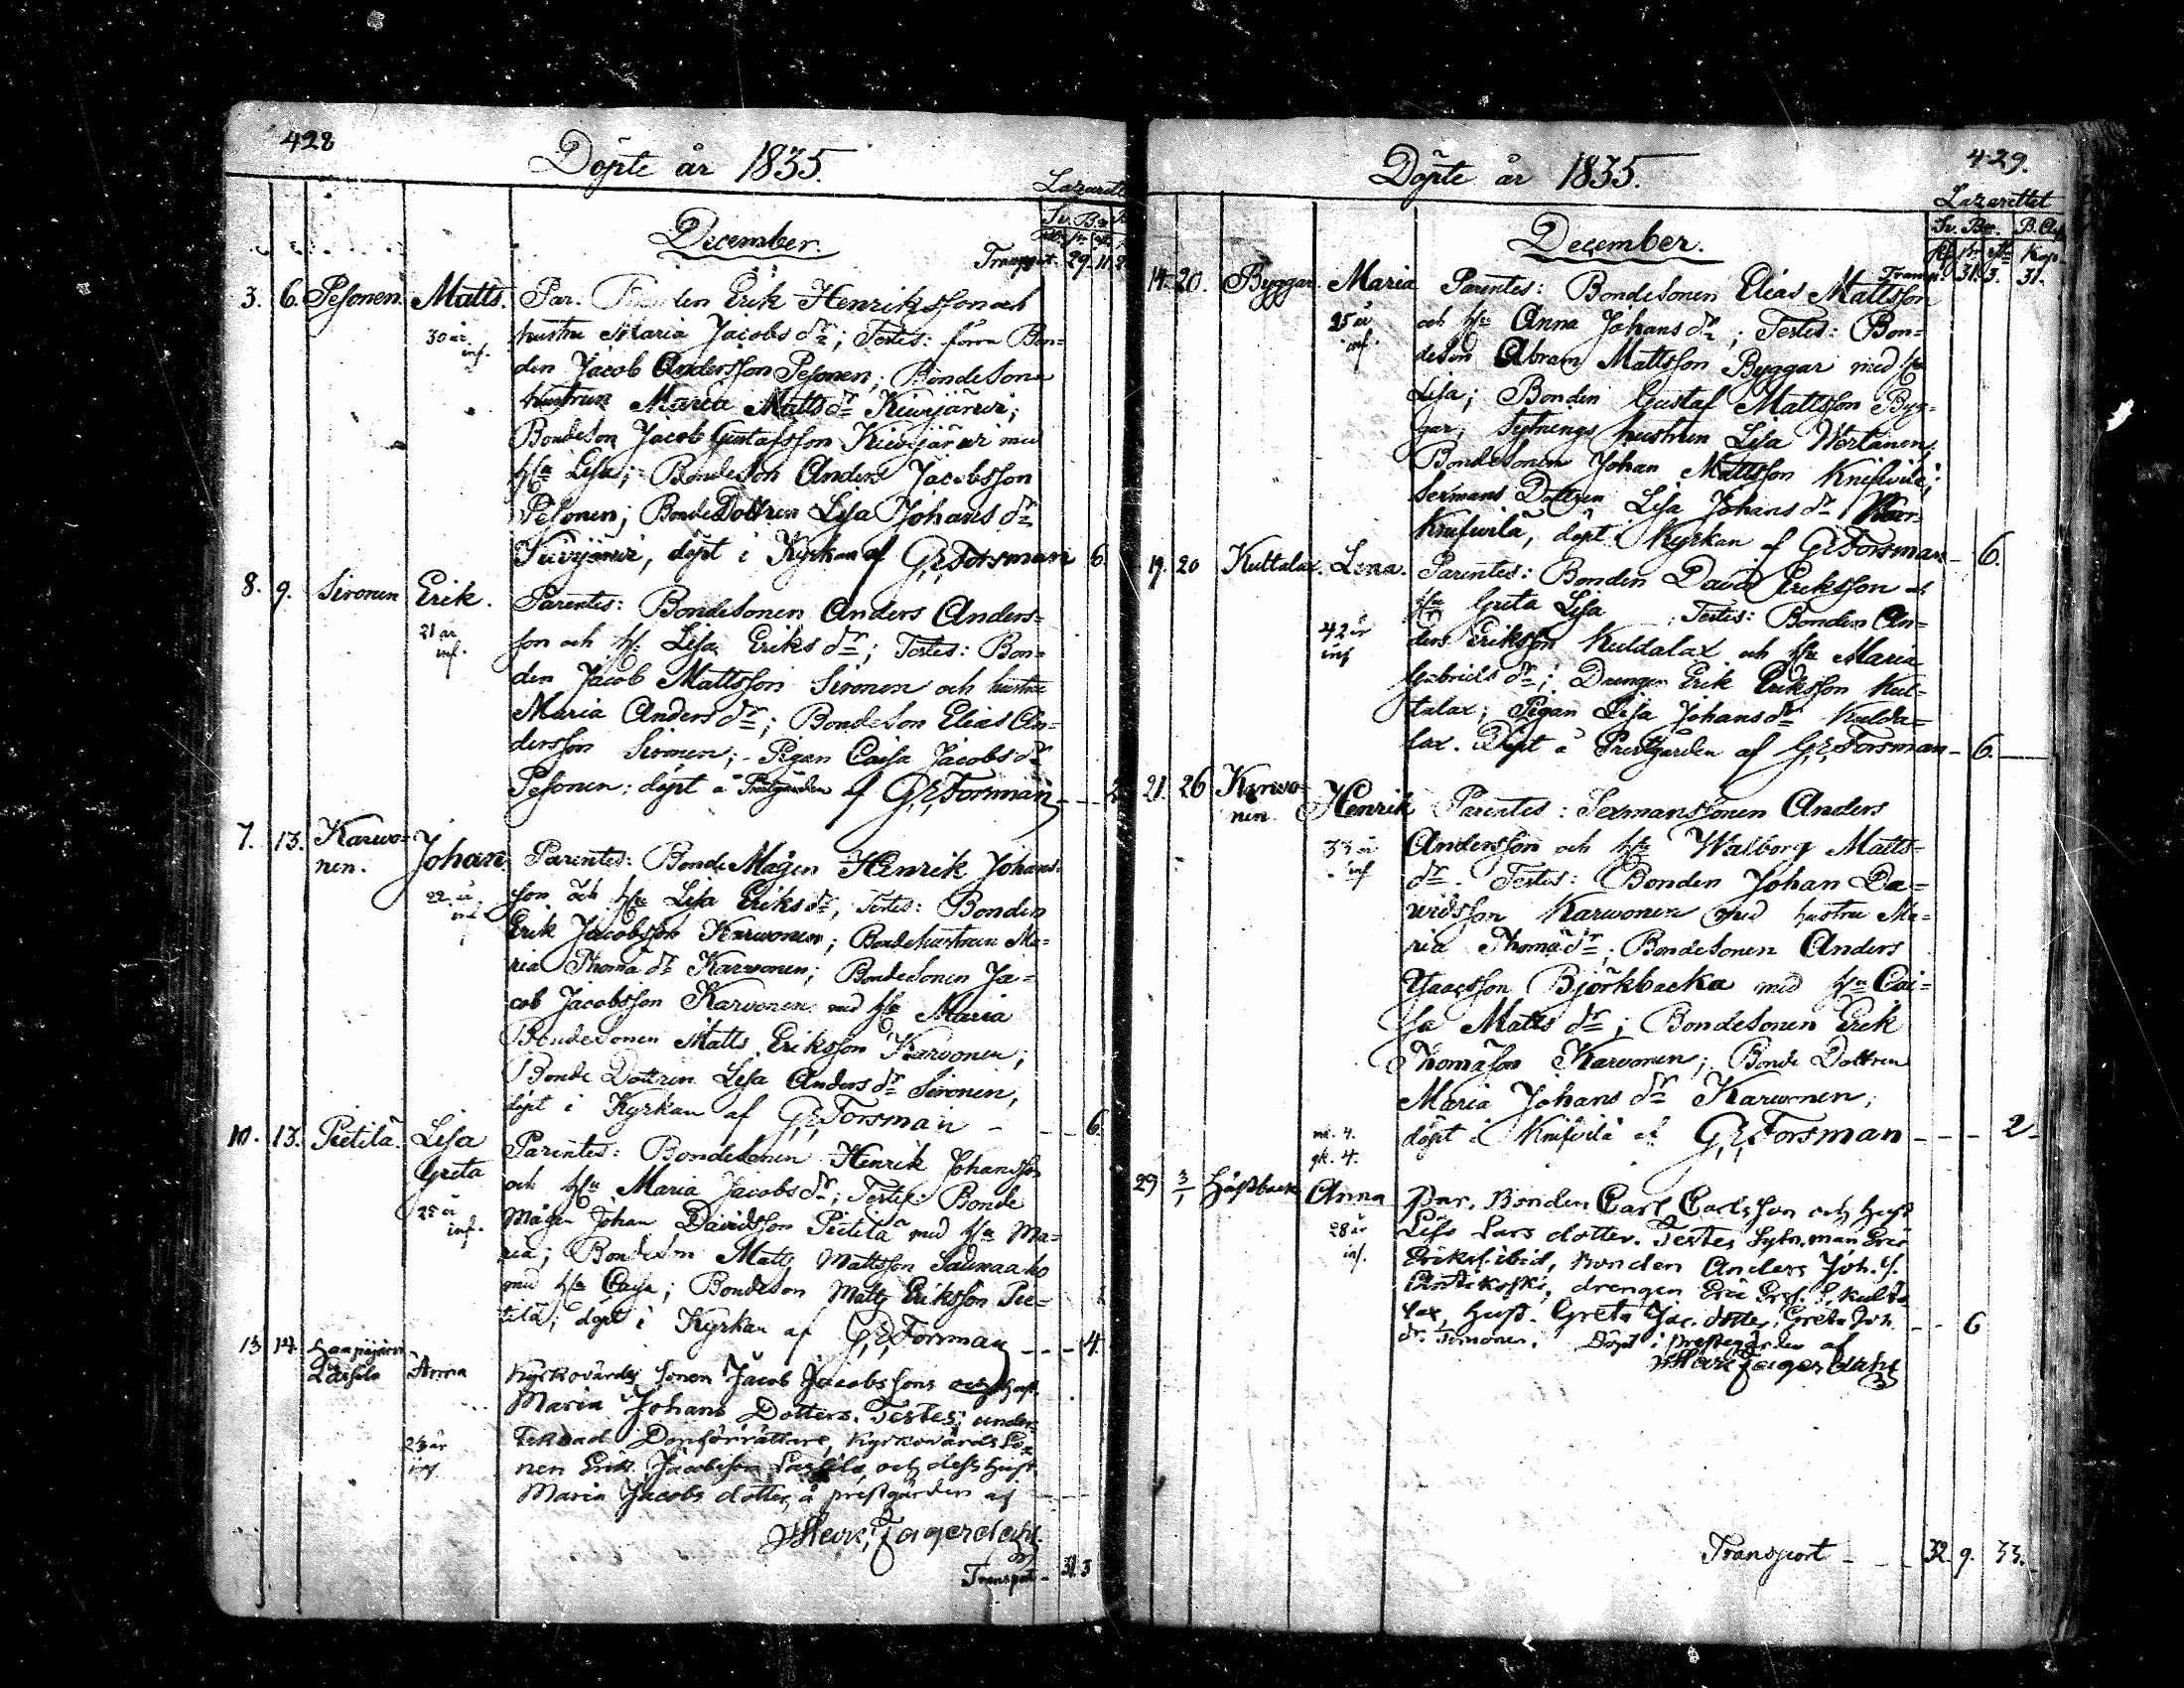 428
Döpte år 1835.
Lazarett
December.
Sv. B.
Transport. 29. 11.
3. 6. Pesonen. Matts. Par. Erik Henriksson och
30 år inf. hustru Maria Jacobs dr; Testes: förra Bon=
den Jacob Andersson Pesonen; Bondesons
hustrun Maria Matts dr Kiwijärwi;
Bondeson Jacob Gustafsson Kiwijärwi med
hu Lisa; Bondeson Anders Jacobsson
Pesonen; BondeDottren Lisa Johans dr
Kiwijärwi, döpt i Kyrkan af G. E. Forsman 6.
8. 9. Sironen Erik. Parentes: Bondesonen Anders Anders=
21 år inf. son och h: Lisa Eriks dr; Testes: Bon=
den Jacob Mattsson Sironen och hustru
Maria Anders dr; Bondeson Elias An=
dersson Sironen; - Pigan Caisa Jacobs dr
Pesonen: döpt å Prestgården af G. E. Forsman - - 2
7. 13. Karwo=
nen. Johan. Parentes: BondeMågen Henrik Johans=
22 år inf. son och hu Lisa Eriks dr, Testes: Bonden
Erik Jacobsson Karwonen; Bondehustrun Ma=
ria Thoma dr Karwonen; Bondesonen Ja=
cob Jacobsson Karvonen med hu Maria
Bondesonen Matts Eriksson Karvonen;
Bonde Dottren Lisa Anders dr Sironen,
döpt i Kyrkan af G. E. Forsman - - 6.
10. 13. Pietilä. Lisa Parentes: Bondesonen Henrik Johansson
Greta och hu Maria Jacobs dr; Testes: Bonde
25 år inf. Mågen Johan Davidsson Pietilä med hu Ma=
ria; Bondeson Matts Mattsson Saunaaho
med hu Caisa; Bondeson Matts Eriksson Pie=
tilä; döpt i Kyrkan af G. E. Forsman - - 4.
13 14. Haapajärvi
Lassila Anna Kyrkovärds sonen Jacob Jacobssons och hust.
Maria Johans Dotters. Testes: under=
23 år inf. teknad Dopförrättare, Kyrkovärds So=
nen Erik Jacobsson Lassila och dess hust.
Maria Jacobs dotter, å prestgården af - -
Fagerdahl.
Transport - 31. 3
429.
Döpte år 1835.
Lazarettet
December.
Sv. Bco. B. A.
Transp. 31. 3. 31.
14. 20. Byggar Maria Parentes: Bondesonen Elias Mattsson
25 år inf. och hu Anna Johans dr; Testes: Bon=
deson Abram Mattsson Byggar med hu
Lisa; Bonden Gustaf Mattsson Byg=
gar; Sytnings hustrun Lisa Wertanen;
Bondesonen Johan Mattsson Knifwilä;
Sexmans Dottren Lisa Johans dr
Knifwilä, döpt i Kyrkan af G. E. Forsman - 6.
19. 20 Kultalax. Lena. Parentes: Bonden David Eriksson och
hu Greta Lisa Testes: Bonden An=
42 år inf ders Eriksson Kuldalax och hu Maria
Gabriels dr; Drengen Erik Eriksson Kul=
talax; Pigan Lisa Johans dr Kulda=
lax. Döpt å Prestgården af G. E. Forsman - 6.
21. 26 Karwo=
nen. Henrik Parentes: Sexmanssonen Anders
33 år inf Andersson och hu Walborg Matts
dr. Testes: Bonden Johan Da=
widsson Karwonen med hustru Ma=
ria Thoma dr; Bondesonen Anders
Isaacsson Björkbacka med hu Cai=
sa Matts dr; Bondesonen Erik
Thomasson Karwonen; Bonde Dottren
Maria Johans dr Karwonen;
mk. 4.
gk. 4. döpt i Knifvilä af G. E. Forsman - - - 2.
29 3/1 Håstbacka Anna Par. Bonden Carl Carlsson och hust
28 år inf. Lisa Lars dotter. Testes Sytn. man Eric
Eriks. ibid, bonden Anders Joh. s.
Anttikoski, drengen Eric Ers. s. Kulta
lax, hust. Greta Jac. dotter, Greta Joh.
dr. Timonen. Döpt i prestegården af - - 6
Fagerdahl
Transport - - - 32. 9. 33.